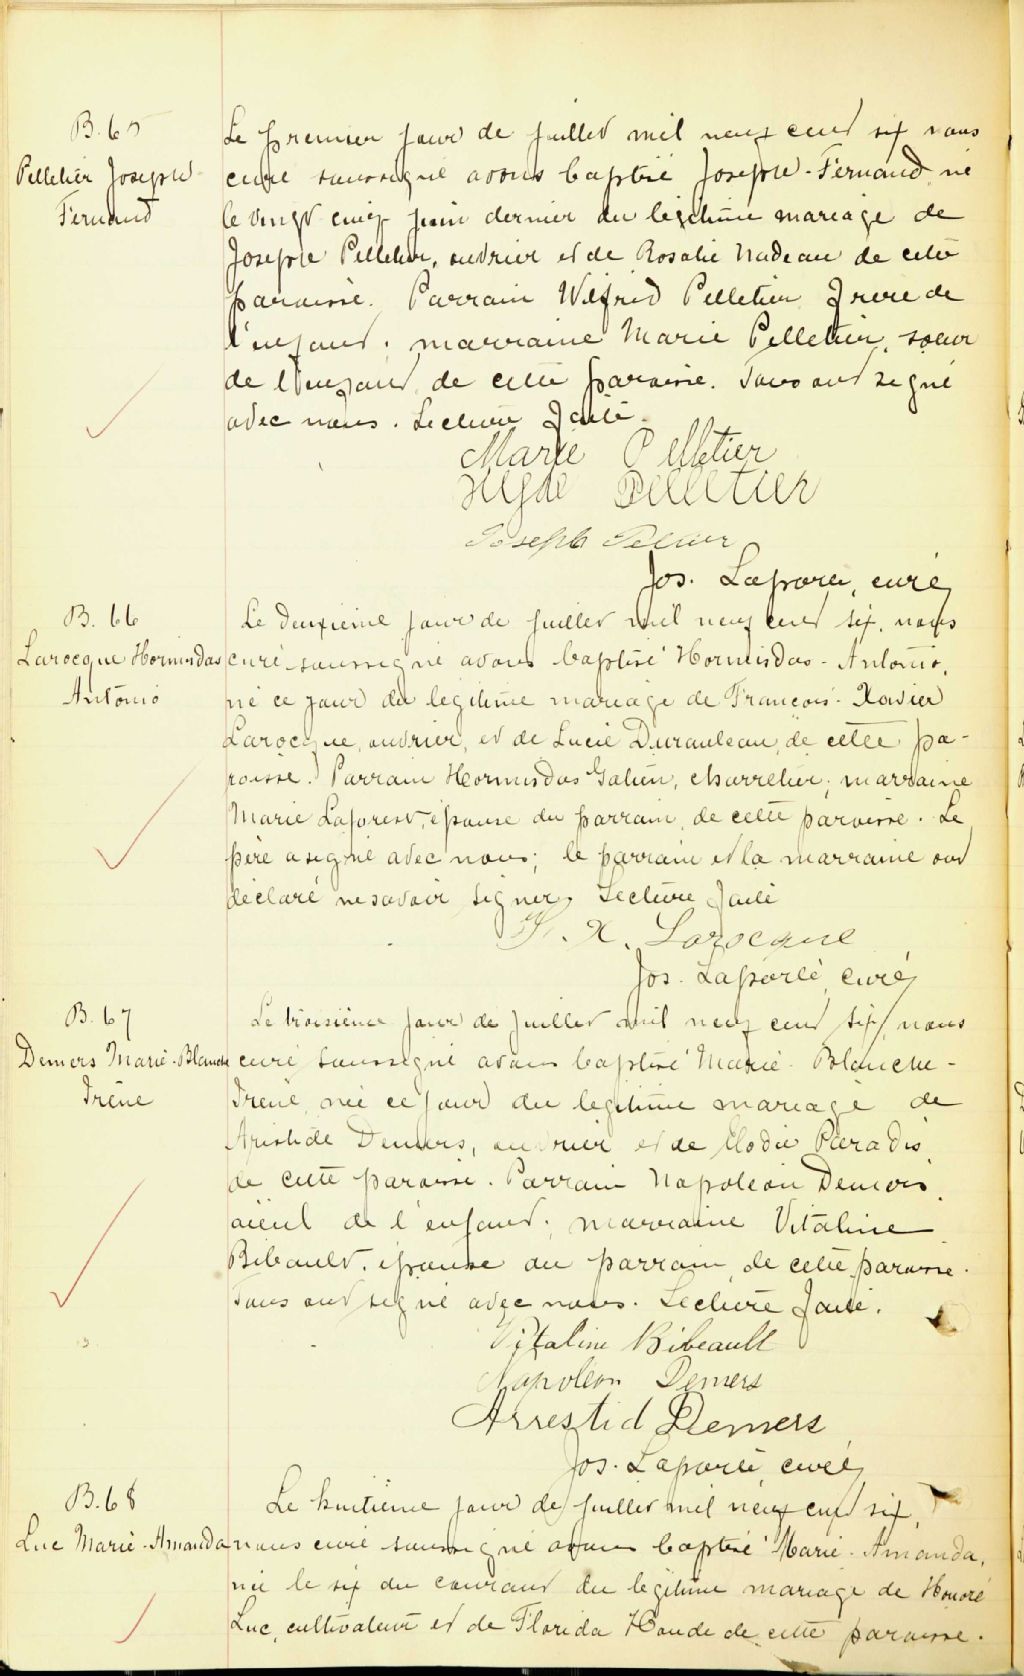 B. 65
Pelletier Joseph
Fernand
Le premier jour de juillet mil neuf cent six nous
curé soussigné avons baptisé Joseph-Fernand né
le vingt cinq juin dernier du légitime mariage de
Joseph Pelletier, ouvrier et de Rosalie Nadeau de cette
paroisse. Parrain Wilfrid Pelletier frère de
l'enfant; marraine Marie Pelletier, soeur
de l'enfant, de cette paroisse. Tous ont signé
avec nous. Lecture faite.
Marie Pelletier
Pelletier
Joseph
Jos. Laporte, curé
B. 66
Larocque Hormisdas
Antonio
Le deuxième jour de juillet mil neuf cent six, nous
curé soussigné avons baptisé Hormisdas-Antonio,
né ce jour du légitime mariage de François-Xavier
Larocque, ouvrier, et de Lucie Durauleau, de cette pa-
roisse. Parrain Hormisdas Galien, charretier; marraine
Marie Laforest, épouse du parrain, de cette paroisse. Le
père a signé avec nous; le parrain et la marraine ont
déclaré ne savoir signer. Lecture faite
F. X. Larocque
Jos. Laporte, curé
B. 67
Demers Marie-Blanche
Irène
Le troisième jour de juillet mil neuf cent six, nous
curé soussigné avons baptisé Marie-Blanche-
Irène, née ce jour du légitime mariage de
Aristide Demers, ouvrier et de Elodie Paradis
de cette paroisse. Parrain Napoléon Demers,
aïeul de l'enfant; marraine Vitaline
Bibault, épouse du parrain, de cette paroisse.
Tous ont signé avec nous. Lecture faite.
Vitaline Bibeault
Napoléon Demers
Arrestid Demers
Jos. Laporte, curé
B. 68
Luc Marie-Amanda
Le huitième jour de juillet mil neuf cent six,
nous curé soussigné avons baptisé Marie-Amanda,
née le six du courant du légitime mariage de Honoré
Luc, cultivateur et de Florida Houde de cette paroisse.